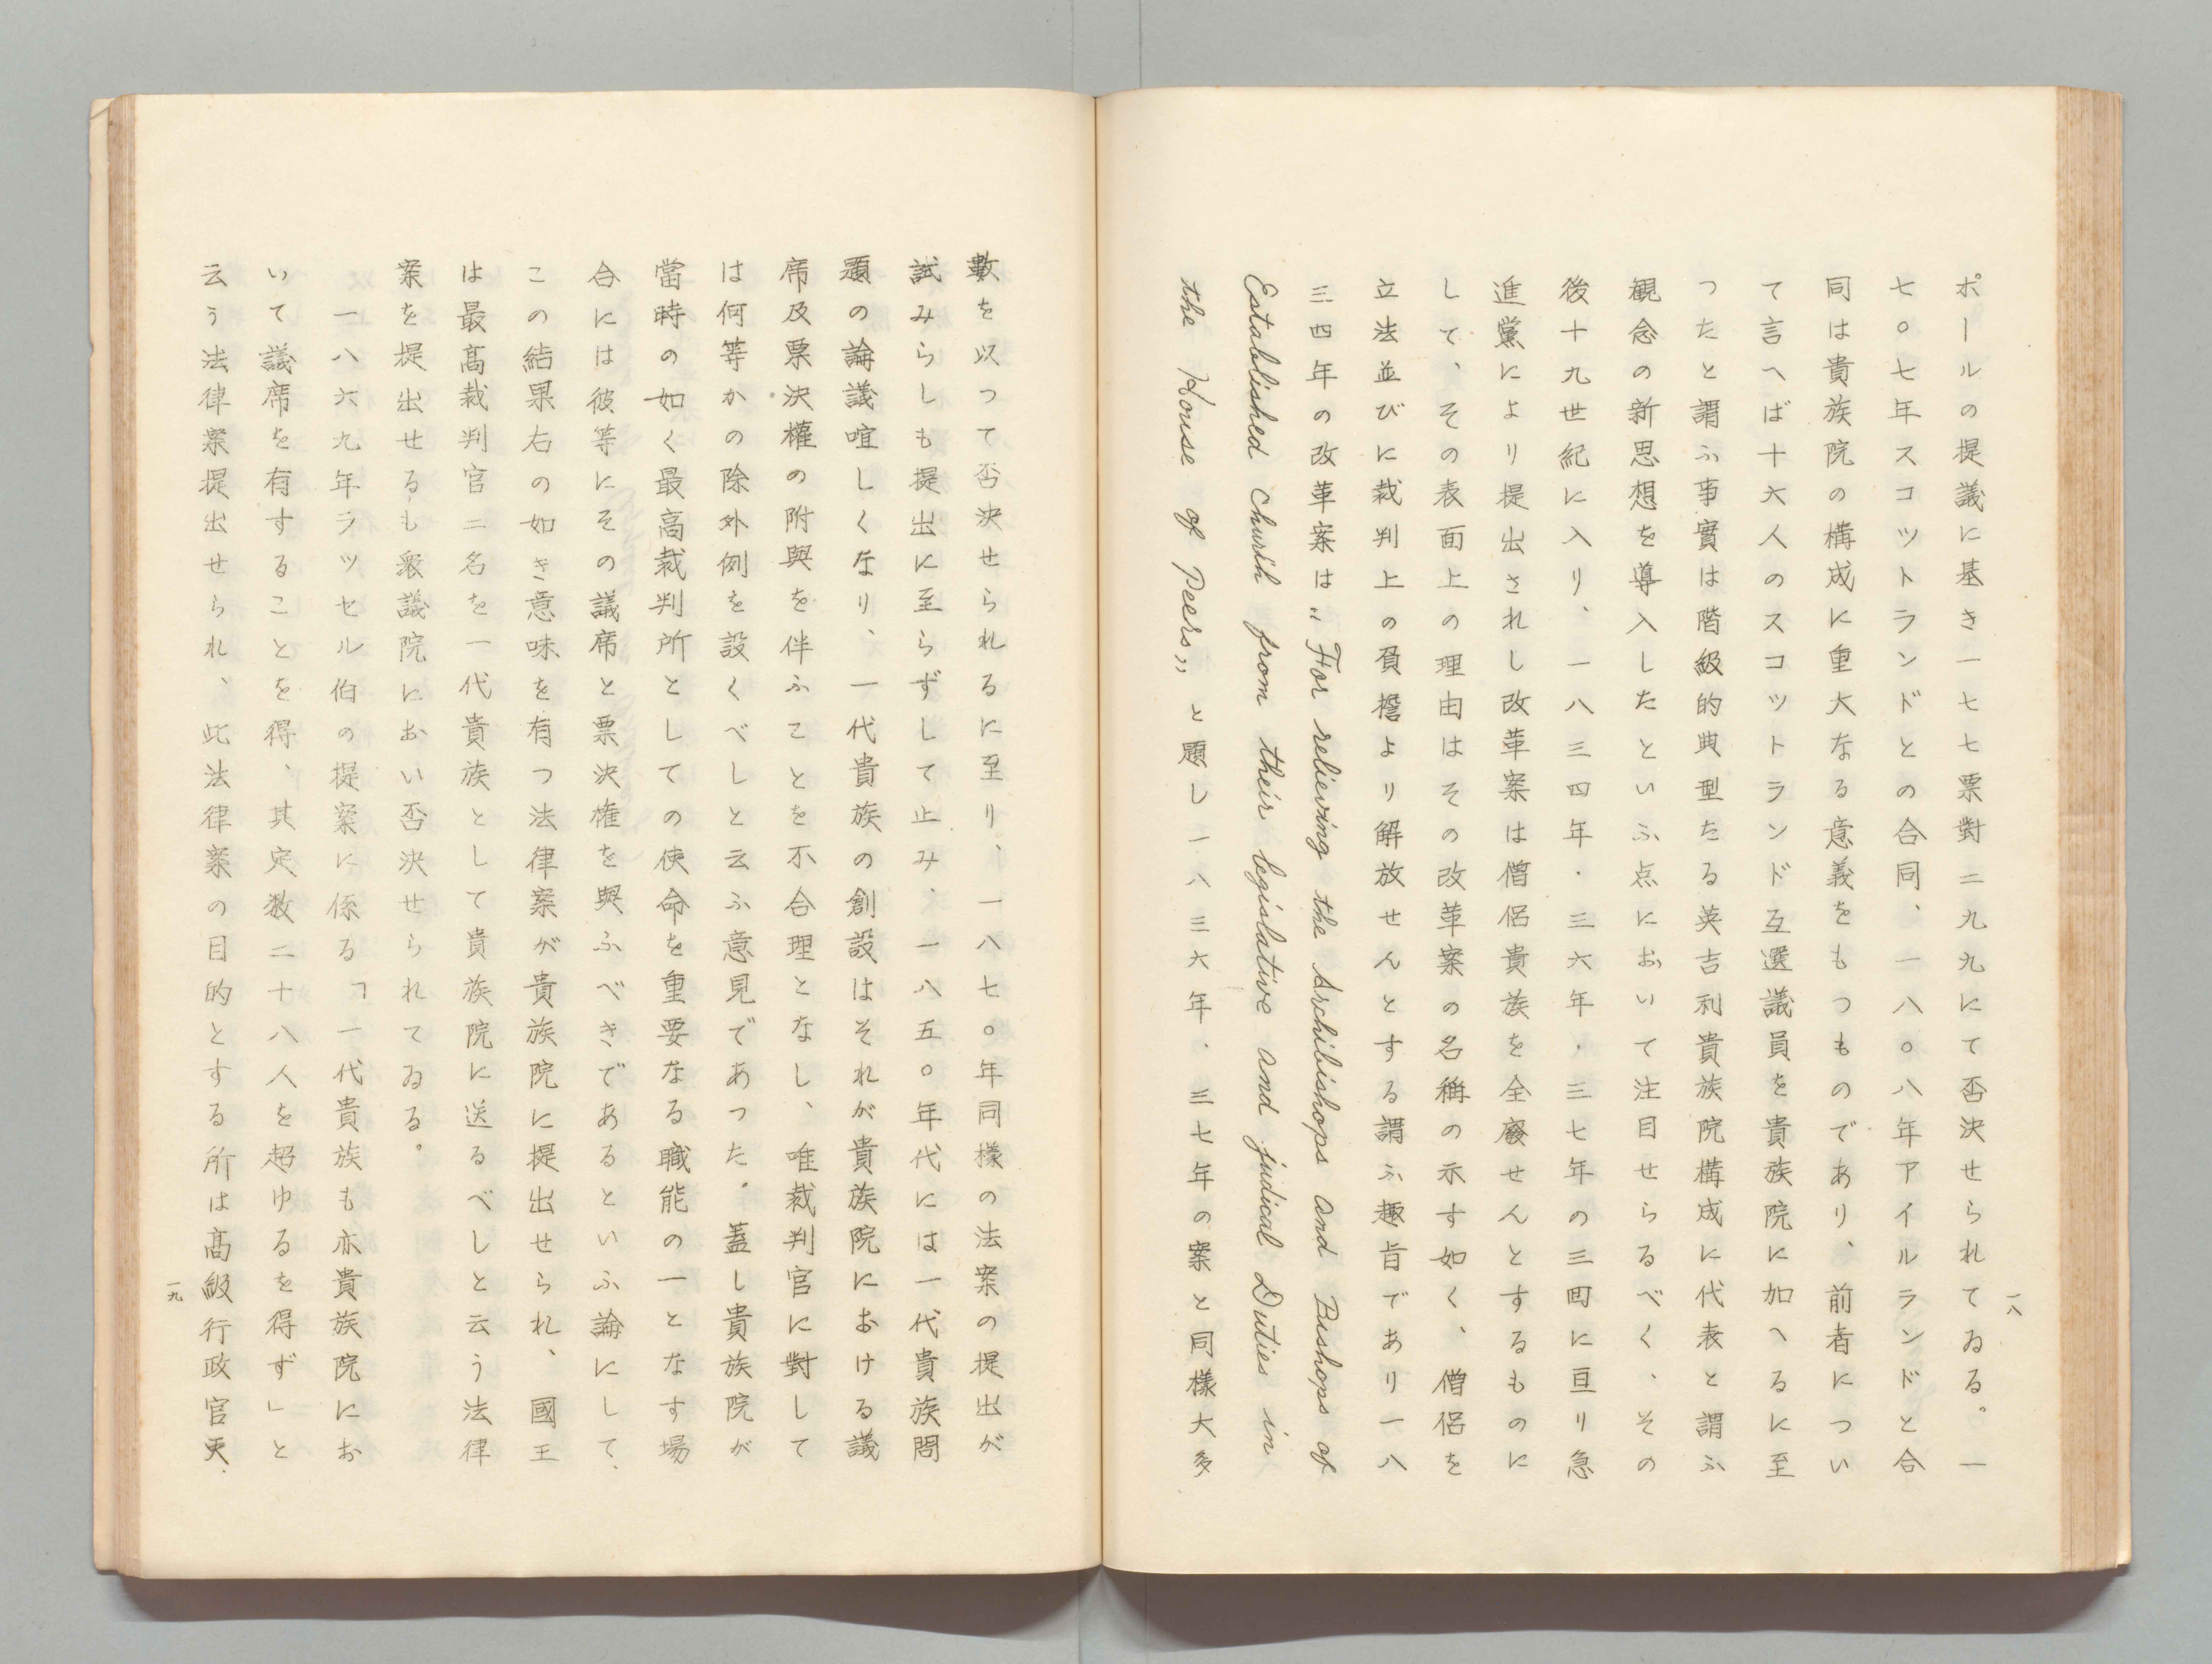 一八
ポールの提議に基き一七七票對二九九にて否決せられてゐる。一
七〇七年スコツトランドとの合同、一八〇八年アイルランドと合
同は貴族院の構成に重大なる意義をもつものであり、前者につい
て言へば十六人のスコツトランド互選議員を貴族院に加へるに至
つたと謂ふ事實は階級的典型たる英吉利貴族院構成に代表と謂ふ
観念の新思想を導入したといふ点において注目せらるべく、その
後十九世紀に入り、一八三四年・三六年・三七年の三囘に亘り急
進黨により提出されし改革案は僧侶貴族を全廢せんとするものに
して、その表面上の理由はその改革案の名稱の示す如く、僧侶を
立法並びに裁判上の負擔より解放せんとする謂ふ趣旨であり一八
三四年の改革案は〝For relieving the Archibishops and Bishops of
Established Church from their legislative and judical Duties in
the House of Peers〟と題し一八三六年・三七年の案と同樣大多
數を以つて否決せられるに至り、一八七〇年同樣の法案の提出が
試みらしも提出に至らずして止み、一八五〇年代には一代貴族問
題の論議喧しくなり、一代貴族の創設はそれが貴族院における議
席及票決權の附與を伴ふことを不合理となし、唯裁判官に對して
は何等かの除外例を設くべしと云ふ意見であつた。蓋し貴族院が
當時の如く最高裁判所としての使命を重要なる職能の一となす場
合には彼等にその議席と票決権を與ふべきであるといふ論にして、
この結果右の如き意味を有つ法律案が貴族院に提出せられ、國王
は最髙裁判官二名を一代貴族として貴族院に送るべしと云う法律
案を提出せるも衆議院におい否決せられてゐる。
一八六九年ラツセル伯の提案に係る「一代貴族も亦貴族院にお
いて議席を有することを得、其定数二十八人を超ゆるを得ず」と
云う法律案提出せられ、此法律案の目的とする所は髙級行政官吏、
一九